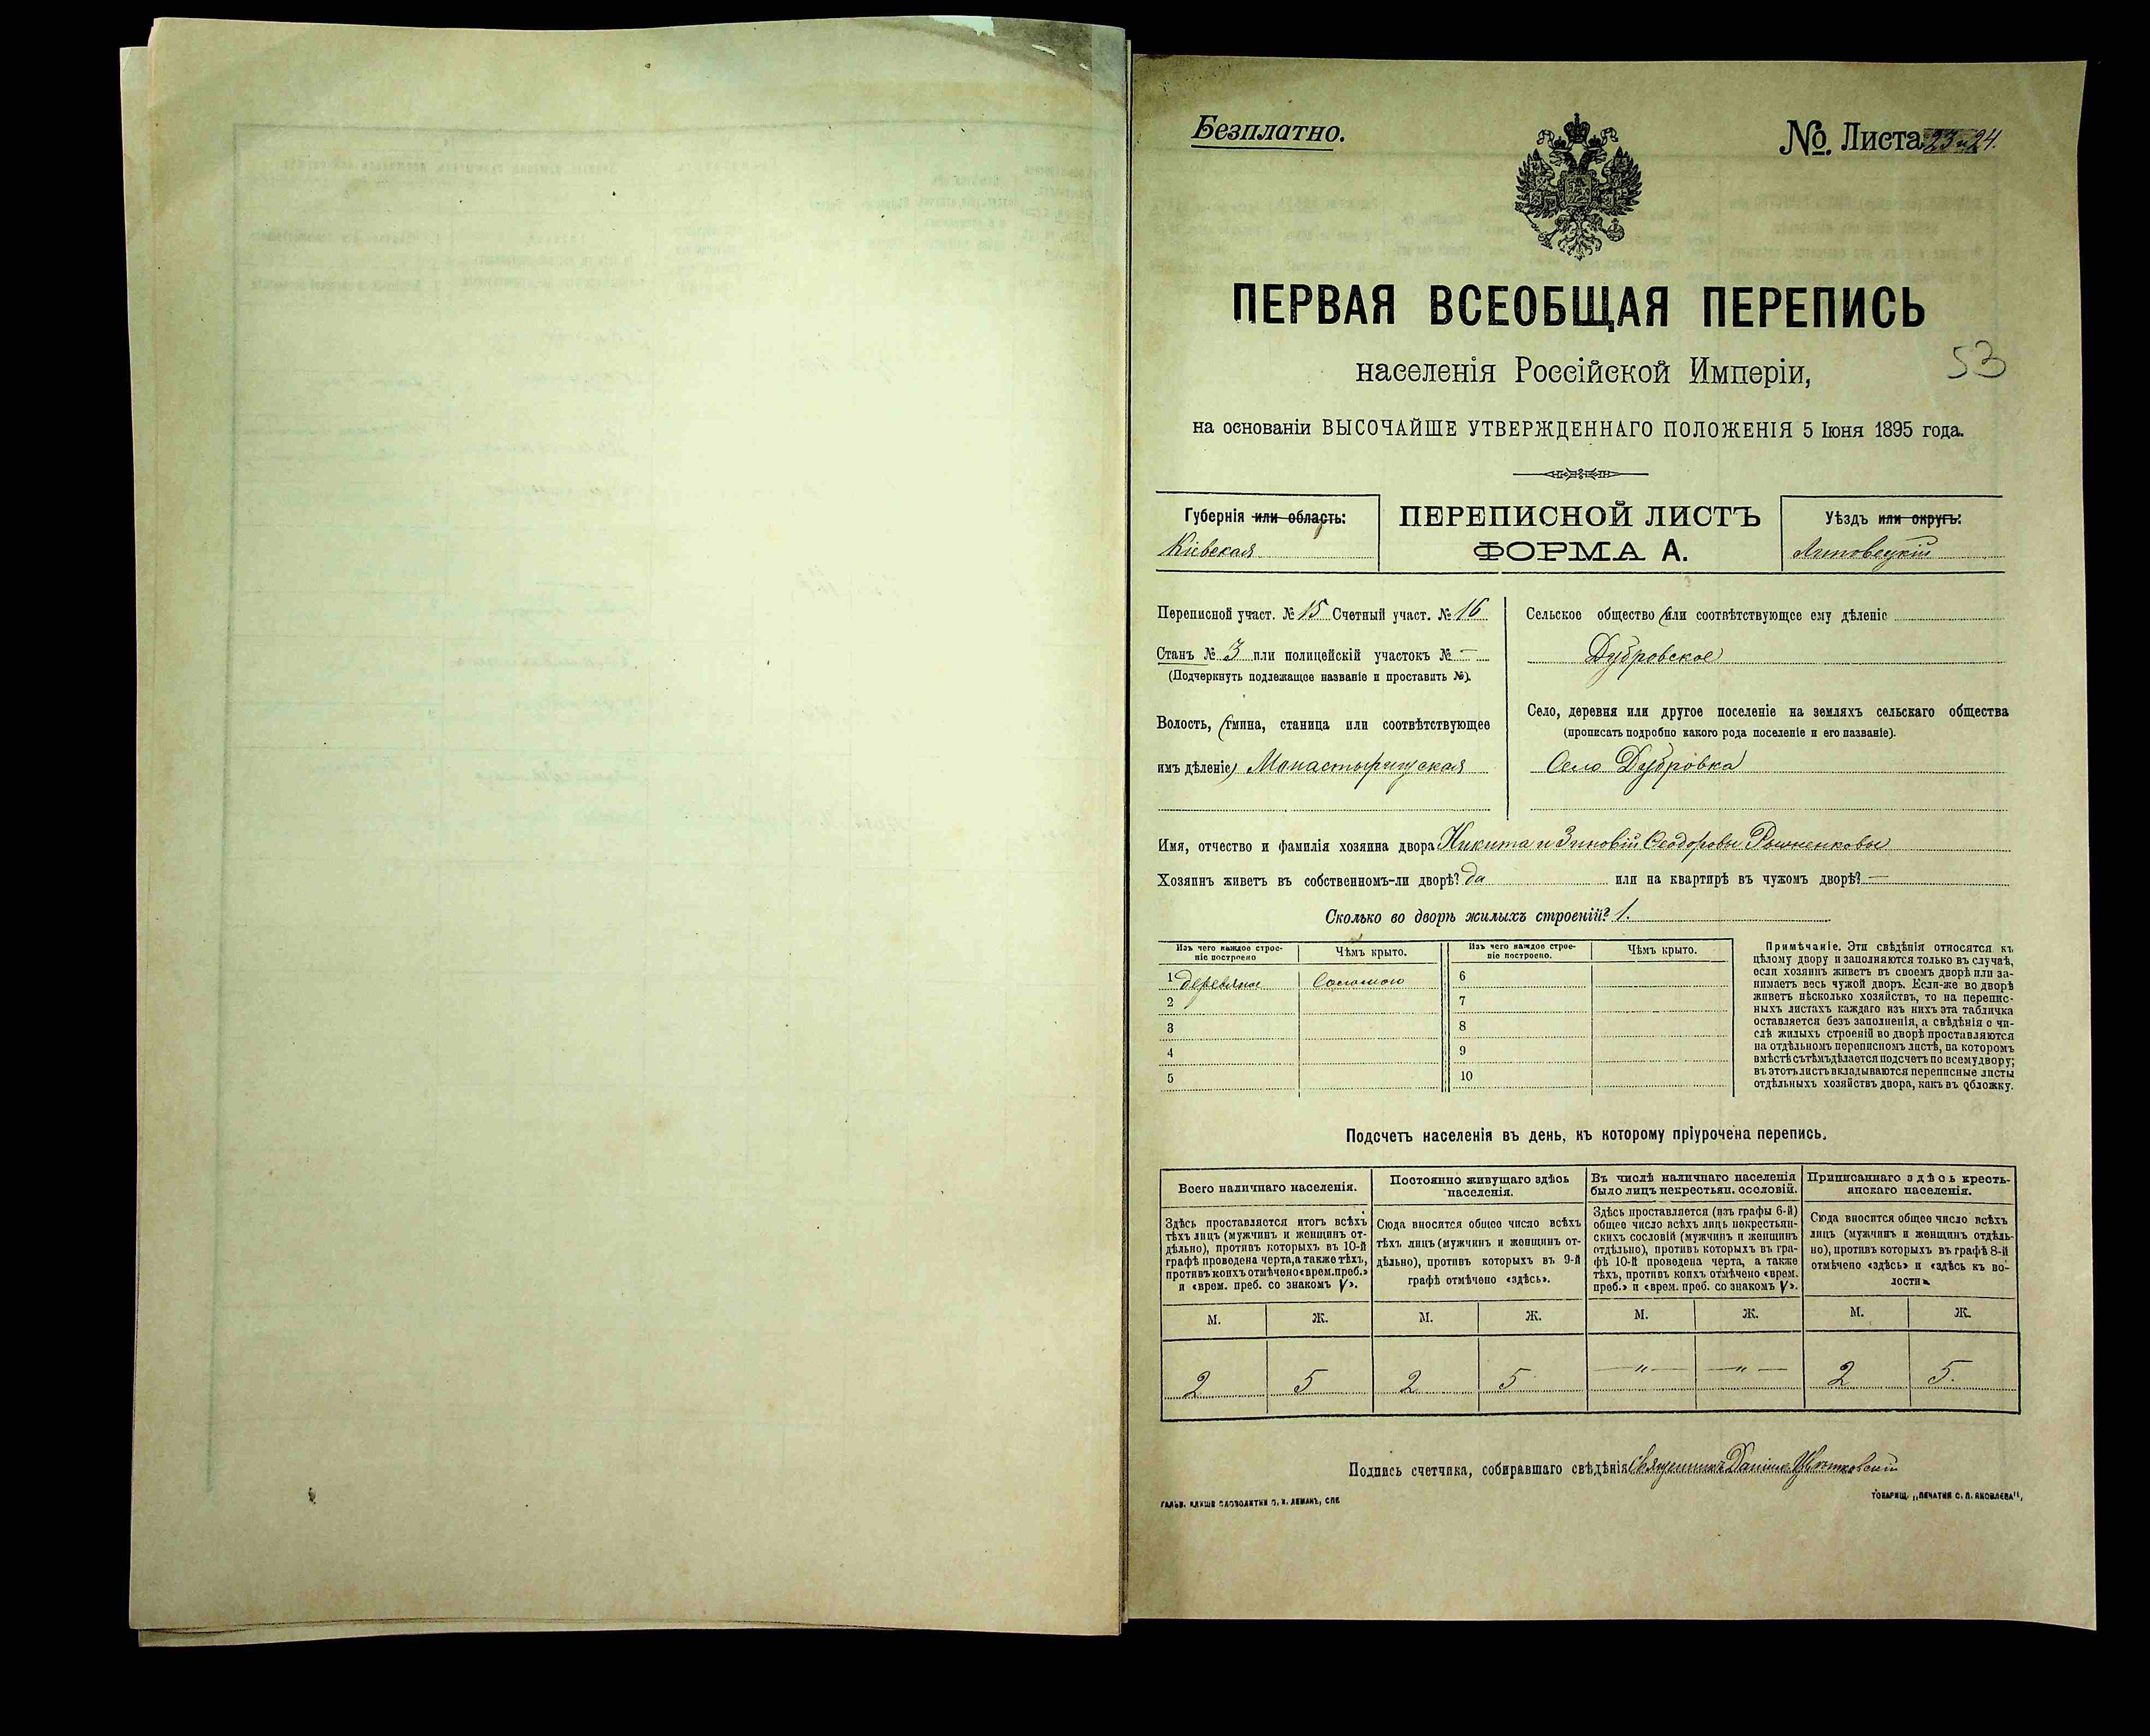 Безплатно.
№ Листа 23 и 24.
ПЕРВАЯ ВСЕОБЩАЯ ПЕРЕПИСЬ
населенія Россійской Имперіи,
53
на основаніи ВЫСОЧАЙШЕ УТВЕРЖДЕННАГО ПОЛОЖЕНІЯ 5 Іюня 1895 года.
Губернія или область:
Кіевская
ПЕРЕПИСНОЙ ЛИСТЪ
ФОРМА А.
Уѣздъ или округъ:
Липовецкій
Переписной участ. № 15 Счетный участ. № 16
Станъ № 3 или полицейскій участокъ № —
(Подчеркнуть подлежащее названіе и проставить №).
Волость, (гмина, станица или соотвѣтствующее
имъ дѣленіе) Монастырищская
Сельское общество (или соотвѣтствующее ему дѣленіе
Дубровское
Село, деревня или другое поселеніе на земляхъ сельскаго общества
(прописать подробно какого рода поселеніе и его названіе).
Село Дубровка
Имя, отчество и фамилія хозяина двора Никита и Зиновій Ѳеодоровы
Хозяинъ живетъ въ собственномъ-ли дворѣ? да или на квартирѣ въ чужомъ дворѣ? —
Сколько во дворѣ жилыхъ строеній? 1.
Изъ чего каждое строе-
ніе построено
Чѣмъ крыто.
1 деревяное Соломою
2
3
4
5
Изъ чего каждое строе-
ніе построено.
Чѣмъ крыто.
6
7
8
9
10
Примѣчаніе. Эти свѣдѣнія относятся къ
цѣлому двору и заполняются только въ случаѣ,
если хозяинъ живетъ въ своемъ дворѣ или за-
нимаетъ весь чужой дворъ. Если-же во дворѣ
живетъ нѣсколько хозяйствъ, то на перепис-
ныхъ листахъ каждаго изъ нихъ эта табличка
оставляется безъ заполненія, а свѣдѣнія о чи-
слѣ жилыхъ строеній во дворѣ проставляются
на отдѣльномъ переписномъ листѣ, на которомъ
вмѣстѣ съ тѣмъ дѣлается подсчетъ по всему двору;
въ этотъ листъ вкладываются переписные листы
отдѣльныхъ хозяйствъ двора, какъ въ обложку.
Подсчетъ населенія въ день, къ которому пріурочена перепись.
Всего наличнаго населенія.
Здѣсь проставляется итогъ всѣхъ
тѣхъ лицъ (мужчинъ и женщинъ от-
дѣльно), противъ которыхъ въ 10-й
графѣ проведена черта, а также тѣхъ,
противъ коихъ отмѣчено «врем. преб.»
и «врем. преб. со знакомъ V».
Постоянно живущаго здѣсь
населенія.
Сюда вносится общее число всѣхъ
тѣхъ лицъ (мужчинъ и женщинъ от-
дѣльно), противъ которыхъ въ 9-й
графѣ отмѣчено «здѣсь».
Въ числѣ наличнаго населенія
было лицъ некрестьян. сословій.
Здѣсь проставляется (изъ графы 6-й)
общее число всѣхъ лицъ некрестьян-
скихъ сословій (мужчинъ и женщинъ
отдѣльно), противъ которыхъ въ гра-
фѣ 10-й проведена черта, а также
тѣхъ, противъ коихъ отмѣчено «врем.
преб.» и «врем. преб. со знакомъ V».
Приписаннаго здѣсь кресть-
янскаго населенія.
Сюда вносится общее число всѣхъ
лицъ (мужчинъ и женщинъ отдѣль-
но), противъ которыхъ въ графѣ 8-й
отмѣчено «здѣсь» и «здѣсь къ во-
лости».
М. Ж. М. Ж. М. Ж. М. Ж.
2 5 2 5 — " — — " — 2 5.
Подпись счетчика, собиравшаго свѣдѣнія Священникъ Даніилъ
ГАЛЬВ. КЛИШЕ СЛОВОЛИТНИ О. И. ЛЕМАНЪ, СПБ.
ТОВАРИЩ. „ПЕЧАТНЯ С. П. ЯКОВЛЕВА",